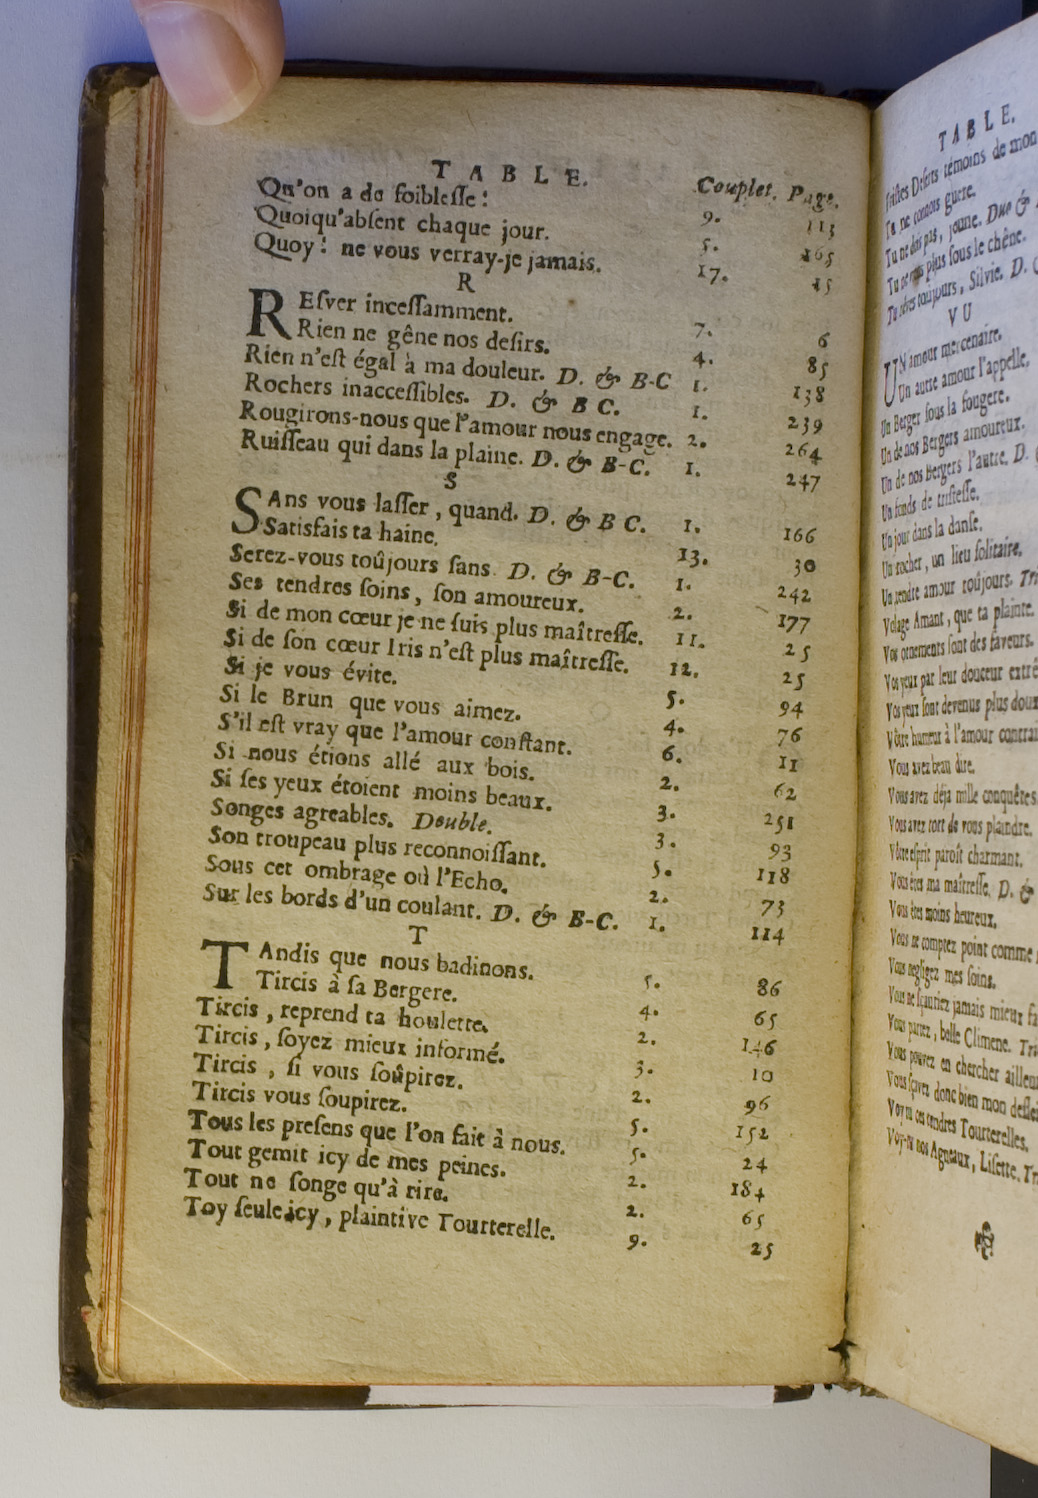 TABLE.
Couplet. Page.
Qu'on a de foibleſſe! 9. 113
Quoiqu'abſent chaque jour. 5. 165
Quoy! ne vous verray-je jamais. 17. 15
R
REſver inceſſamment. 7. 6
Rien ne gêne nos deſirs. 4. 85
Rien n'eſt égal à ma douleur. D. & B-C 1. 138
Rochers inacceſſibles. D. & B C. 1. 239
Rougirons-nous que l'amour nous engage. 2. 264
Ruiſſeau qui dans la plaine. D. & B-C. 1. 247
S
SAns vous laſſer, quand. D. & B C. 1. 166
Satisfais ta haine. 13. 30
Serez-vous toûjours ſans. D. & B-C. 1. 242
Ses tendres ſoins, ſon amoureux. 2. 177
Si de mon cœur je ne ſuis plus maîtreſſe. 11. 25
Si de ſon cœur Iris n'eſt plus maîtreſſe. 12. 25
Si je vous évite. 5. 94
Si le Brun que vous aimez. 4. 76
S'il eſt vray que l'amour conſtant. 6. 11
Si nous étions allé aux bois. 2. 62
Si ſes yeux étoient moins beaux. 3. 251
Songes agreables. Double. 3. 93
Son troupeau plus reconnoiſſant. 5. 118
Sous cet ombrage où l'Echo. 2. 73
Sur les bords d'un coulant. D. & B-C. 1. 114
T
TAndis que nous badinons. 5. 86
Tircis à ſa Bergere. 4. 65
Tircis, reprend ta houlette. 2. 146
Tircis, ſoyez mieux informé. 3. 10
Tircis, ſi vous ſoûpirez. 2. 96
Tircis vous ſoupirez. 5. 152
Tous les preſens que l'on fait à nous. 5. 24
Tout gemit icy de mes peines. 2. 184
Tout ne ſonge qu'à rire. 2. 65
Toy ſeule icy, plaintive Tourterelle. 9. 25
TABLE.
Triſtes Deſerts témoins de mon
Tu ne connois guere.
Tu ne dois pas, jeune. Duo &
Tu ne vas plus ſous le chêne.
Tu réves toûjours, Silvie. D.
VU
UN amour mercenaire.
Un autre amour l'appelle.
Un Berger ſous la fougere.
Un de nos Bergers amoureux.
Un de nos Bergers l'autre. D.
Un fonds de triſteſſe.
Un jour dans la danſe.
Un rocher, un lieu ſolitaire.
Un tendre amour toûjours.
Volage Amant, que ta plainte.
Vos ornements ſont des faveurs.
Vos yeux par leur douceur
Vos yeux ſont devenus plus
Vôtre humeur à l'amour
Vous avez beau dire.
Vous avez déjà mille conquêtes
Vous avez tort de vous plaindre.
Vôtre eſprit paroît charmant.
Vous êtes ma maîtreſſe. D. &
Vous êtes moins heureux.
Vous ne comptez point comme
Vous negligez mes ſoins.
Vous ne ſçauriez jamais mieux
Vous partez, belle Climene.
Vous pouvez en chercher
Vous ſçavez donc bien mon
Voy tu ces tendres Tourterelles.
Voy-tu nos Agneaux, Liſette.